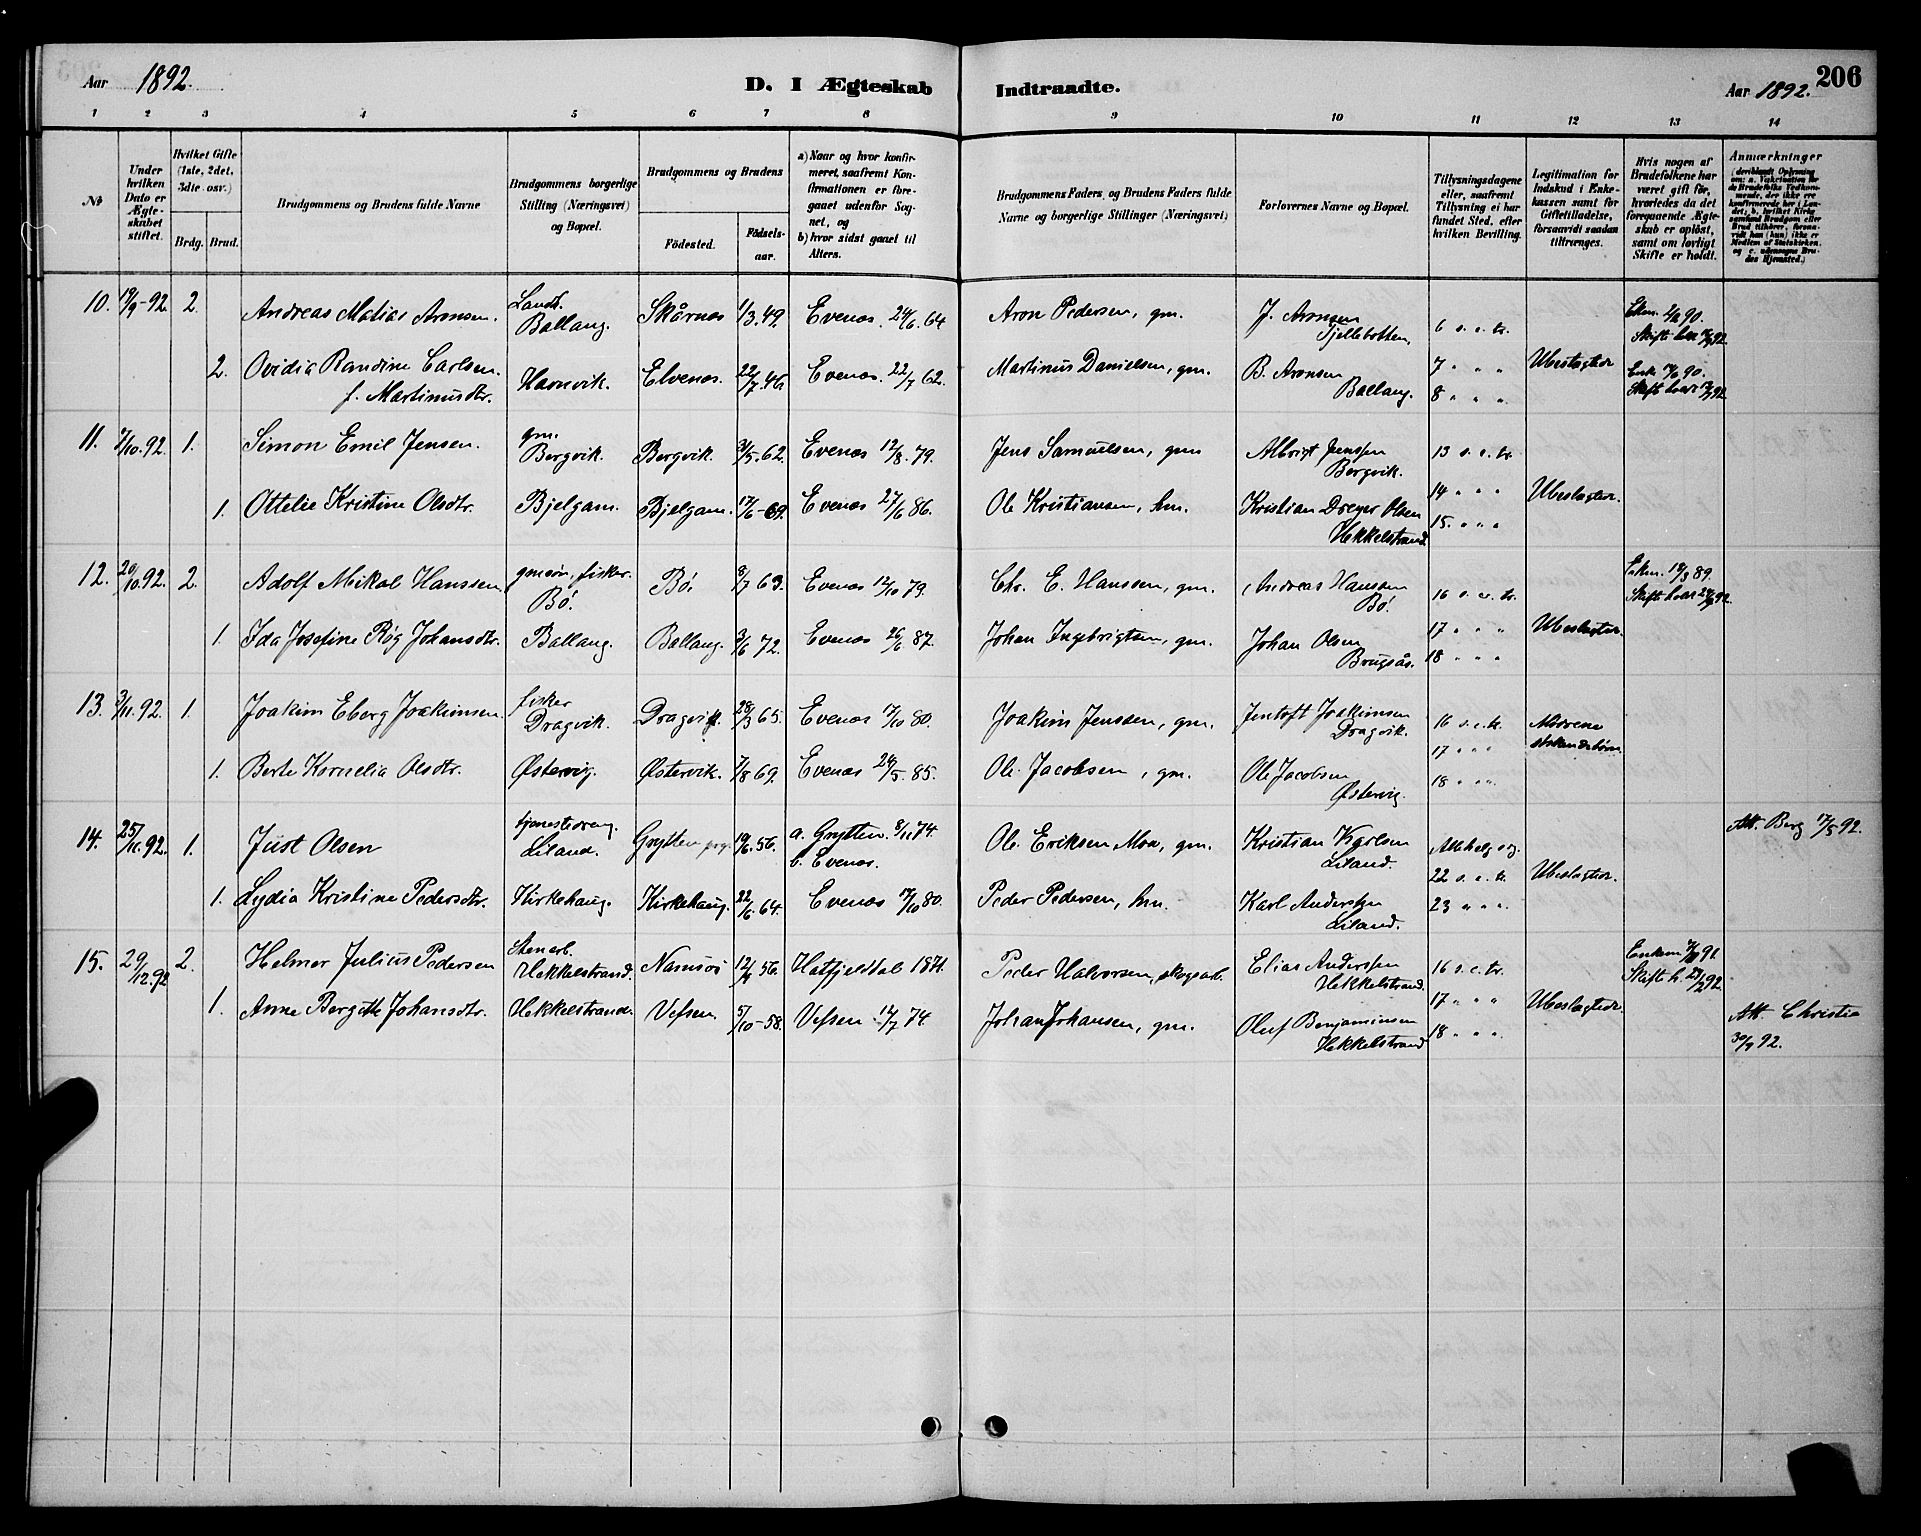 Aar 1892.
D. I Ægteskab Indtraadte.
Aar 1892. 206
1 2 3 4 5 6 7 8 9 10 11 12 13 14
№
Under hvilken Dato er Ægteskabet stiftet.
Hvilket Gifte (1ste, 2det, 3die osv.)
Brdg. Brud.
Brudgommens og Brudens fulde Navne
Brudgommens borgerlige Stilling (Næringsvei) og Bopæl.
Brudgommens og Brudens
Födested.
Födselsaar.
a) Naar og hvor konfirmeret, saafremt Konfirmationen er foregaaet udenfor Sognet, og
b) hvor sidst gaaet til Alters.
Brudgommens Faders og Brudens Faders fulde Navne og borgerlige Stillinger (Næringsvei)
Forlovernes Navne og Bopæl.
Tillysningsdagene eller, saafremt Tillysning ei har fundet Sted, efter hvilken Bevilling.
Legitimation for Indskud i Enkekassen samt for Giftetilladelse, forsaavidt saadan tiltrænges.
Hvis nogen af Brudefolkene har været gift før, hvorledes da det foregaaende Ægteskab er oplöst, samt om lovligt Skifte er holdt.
Anmærkninger
10. 19/9-92 2. Andreas Matias Aronsen. Landh. Ballang. Skårnes 1/3.49. Evenes. 24/6.64 Aron Pedersen, gm. J. Aronsen Tjellebotten. 6 s. e. tr. Skifte
2. Ovidia Randine Carlsen f. Martinusdtr. Havnvik. Elvenes. 22/7.46. Evenes. 22/7 62. Martinus Danielsen, gm. B. Aronsen Ballang. 7 " " " 8 " " " Ubeslægtede Skifte
11. 7/10.92. 1. Simon Emil Jensen. gm. Bergvik. Bergvik. 3/5.62. Evenes 12/8.79. Jens Samuelsen, gm Albrigt Jenssen Bergvik. 13 s. e. tr.
1. Ottelie Kristine Olsdtr. Bjelgam. Bjelgam. 17/6-69. Evenes 27/6 86. Ole Kristiansen, hm. Kristian Dreyer Olsen Hekkelstrand 14 " " " 15. " " " Ubeslægtede.
12. 20/10.92. 2. Adolf Mikal Hanssen. gmsøn, fisker. Bø. Bø. 8/7 63. Evenes 12/10 79. Chr. E. Hanssen, gm. Andreas Hanssen Bø. 16 s. e. tr. Enkem. 18/3 89. Skifte
1. Ida Josefine Røg Johansdtr. Ballang. Ballang. 3/6 72. Evenes 26/6 87. Johan Ingebrigtsen, gm. Johan Olsen Brugsås. 17 " " " 18 " " " Ubeslægtede.
13. 3/11.92. 1. Joakim Eberg Joakimsen. fisker Dragvik. Dragvik. 28/3 65. Evenes 17/10 80. Joakim Jenssen, gm. Jentoft Joakimsen Dragvik. 16 s. e. tr. 17 " " " Mødrene søskendebørn.
1. Berte Kornelia Olsdtr. Østervig. Østervik. 7/8 69. Evenes 24/5. 85. Ole Jacobsen, gm. Ole Jacobsen Østervig. 18 " " "
14. 25/11.92. 1. Just Olsen tjenestedreng. Leland. Grytten prg. 19/6.56. a. Grytten 8/11 74. b. Evenes. Ole Eriksen Moa, gm. Kristian Karlsen Liland. Allehelgensdg. 22 s. e. tr. Att. Berg 17/5 92.
1. Lydia Kristine Pedersdtr. Kirkehaug. Kirkehaug. 22/6.64. Evenes 17/10 80. Peder Pedersen, hm. Karl Anderssen Liland. 23 " " " Ubeslægtede.
15. 29/12.92 2. Helmer Julius Pedersen Stenarb. Hekkelstrand. Namsos 12/4 56. Hatfjelddal 1871. Peder Halvorsen, skogsarb. Elias Anderssen Hekkelstrand. 16 s. e. tr. Enkem. Skifte
1. Anne Bergitte Johansdtr. Hekkelstrand. Vefsen 5/10-58. Vefsen 12/7 74. Johan Johansen, gm. Oluf Benjaminsen Hekkelstrand 17 " " " 18 " " " Ubeslægtede. Att. Christia 30/9 92.